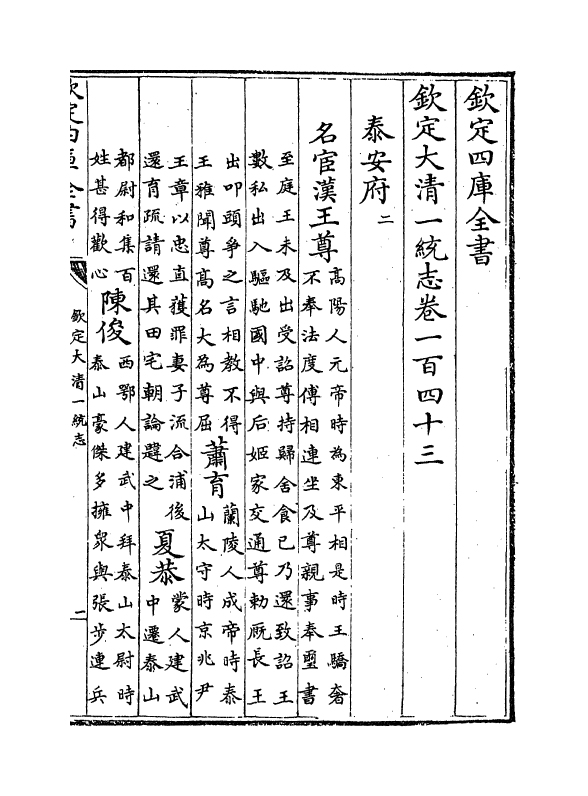 欽定四庫全書
欽定大清一統志卷一百四十三
泰安府二
名宦漢王尊高陽人元帝時為東平相是時王驕奢
不奉法度傅相連坐及尊親事奉璽書
至庭王未及出受詔尊持歸舍食已乃還致詔王
數私出入驅馳國中與后姬家交通尊勅厩長王
出叩頭爭之言相教不得
王雅聞尊高名大為尊屈蕭育蘭陵人成帝時泰
山太守時京兆尹
王章以忠直獲罪妻子流合浦後
還育疏請還其田宅朝論韙之夏恭蒙人建武
中遷泰山
都尉和集百
姓甚得歡心陳俊西鄂人建武中拜泰山太尉時
泰山豪傑多擁衆與張步連兵
欽定四庫全書
欽定大清一統志
二